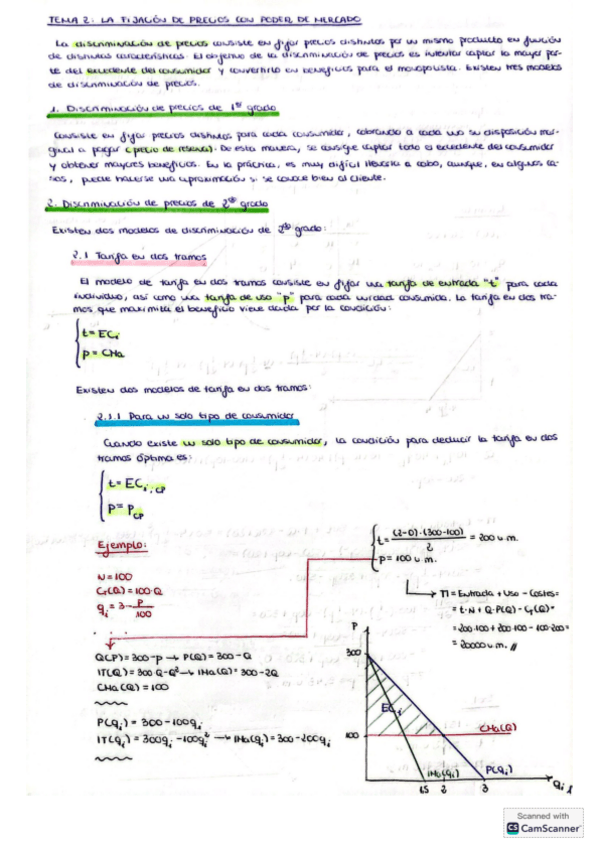 TEMA 2: LA FIJACIÓN DE PRECIOS CON PODER DE MERCADO
La discriminación de precios consiste en fijar precios distintos por un mismo producto en función
de distintas características. El objetivo de la discriminación de precios es intentar captar la mayor par-
te del excedente del consumidor y convertirlo en beneficios para el monopolista. Existen tres modelos
de discriminación de precios.
1. Discriminación de precios de 1er grado
Consiste en fijar precios distintos para cada consumidor, cobrando a cada uno su disposición mar-
ginal a pagar (precio de reserva). De esta manera, se consigue captar todo el excedente del consumidor
y obtener mayores beneficios. En la práctica, es muy difícil llevarla a cabo, aunque, en algunos ca-
sos, puede hacerse una aproximación si se conoce bien al cliente.
2. Discriminación de precios de 2do grado
Existen dos modelos de discriminación de 2do grado:
2.1 Tarifa en dos tramos
El modelo de tarifa en dos tramos consiste en fijar una tarifa de entrada "t" para cada
individuo, así como una tarifa de uso "p" para cada unidad consumida. La tarifa en dos tra-
mos que maximiza el beneficio viene dada por la condición:
t = ECi
p = CMa
Existen dos modelos de tarifa en dos tramos:
2.1.1 Para un solo tipo de consumidor
Cuando existe un solo tipo de consumidor, la condición para deducir la tarifa en dos
tramos óptima es:
t = ECi,CP
p = PCP
Ejemplo:
t = (2-0)·(300-100) / 2 = 200 u.m.
p = 100 u.m.
N = 100
CT(Q) = 100·Q
qi = 3 - P/100
Π = Entrada + Uso - Costes =
= t·N + Q·P(Q) - CT(Q) =
= 200·100 + 200·100 - 100·200 =
= 20000 u.m. //
Q(P) = 300 - p → P(Q) = 300 - Q
IT(Q) = 300·Q - Q² → IMa(Q) = 300 - 2Q
CMa(Q) = 100
P(qi) = 300 - 100qi
IT(qi) = 300qi - 100qi² → IMa(qi) = 300 - 200qi
P
300
ECi
100
CMa(Q)
IMa(qi)
P(qi)
1.5 2 3
qi
Scanned with
CS CamScanner